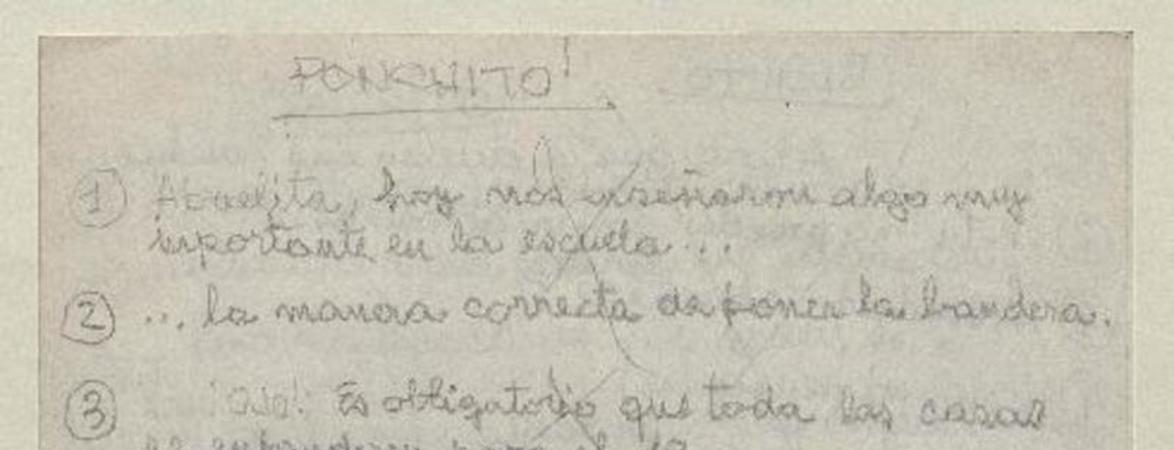 PONCHITO!
① Abuelita, hoy nos enseñaron algo muy
importante en la escuela...
② ... la manera correcta de poner la bandera.
③ ¡Ojo! Es obligatorio que toda las casas